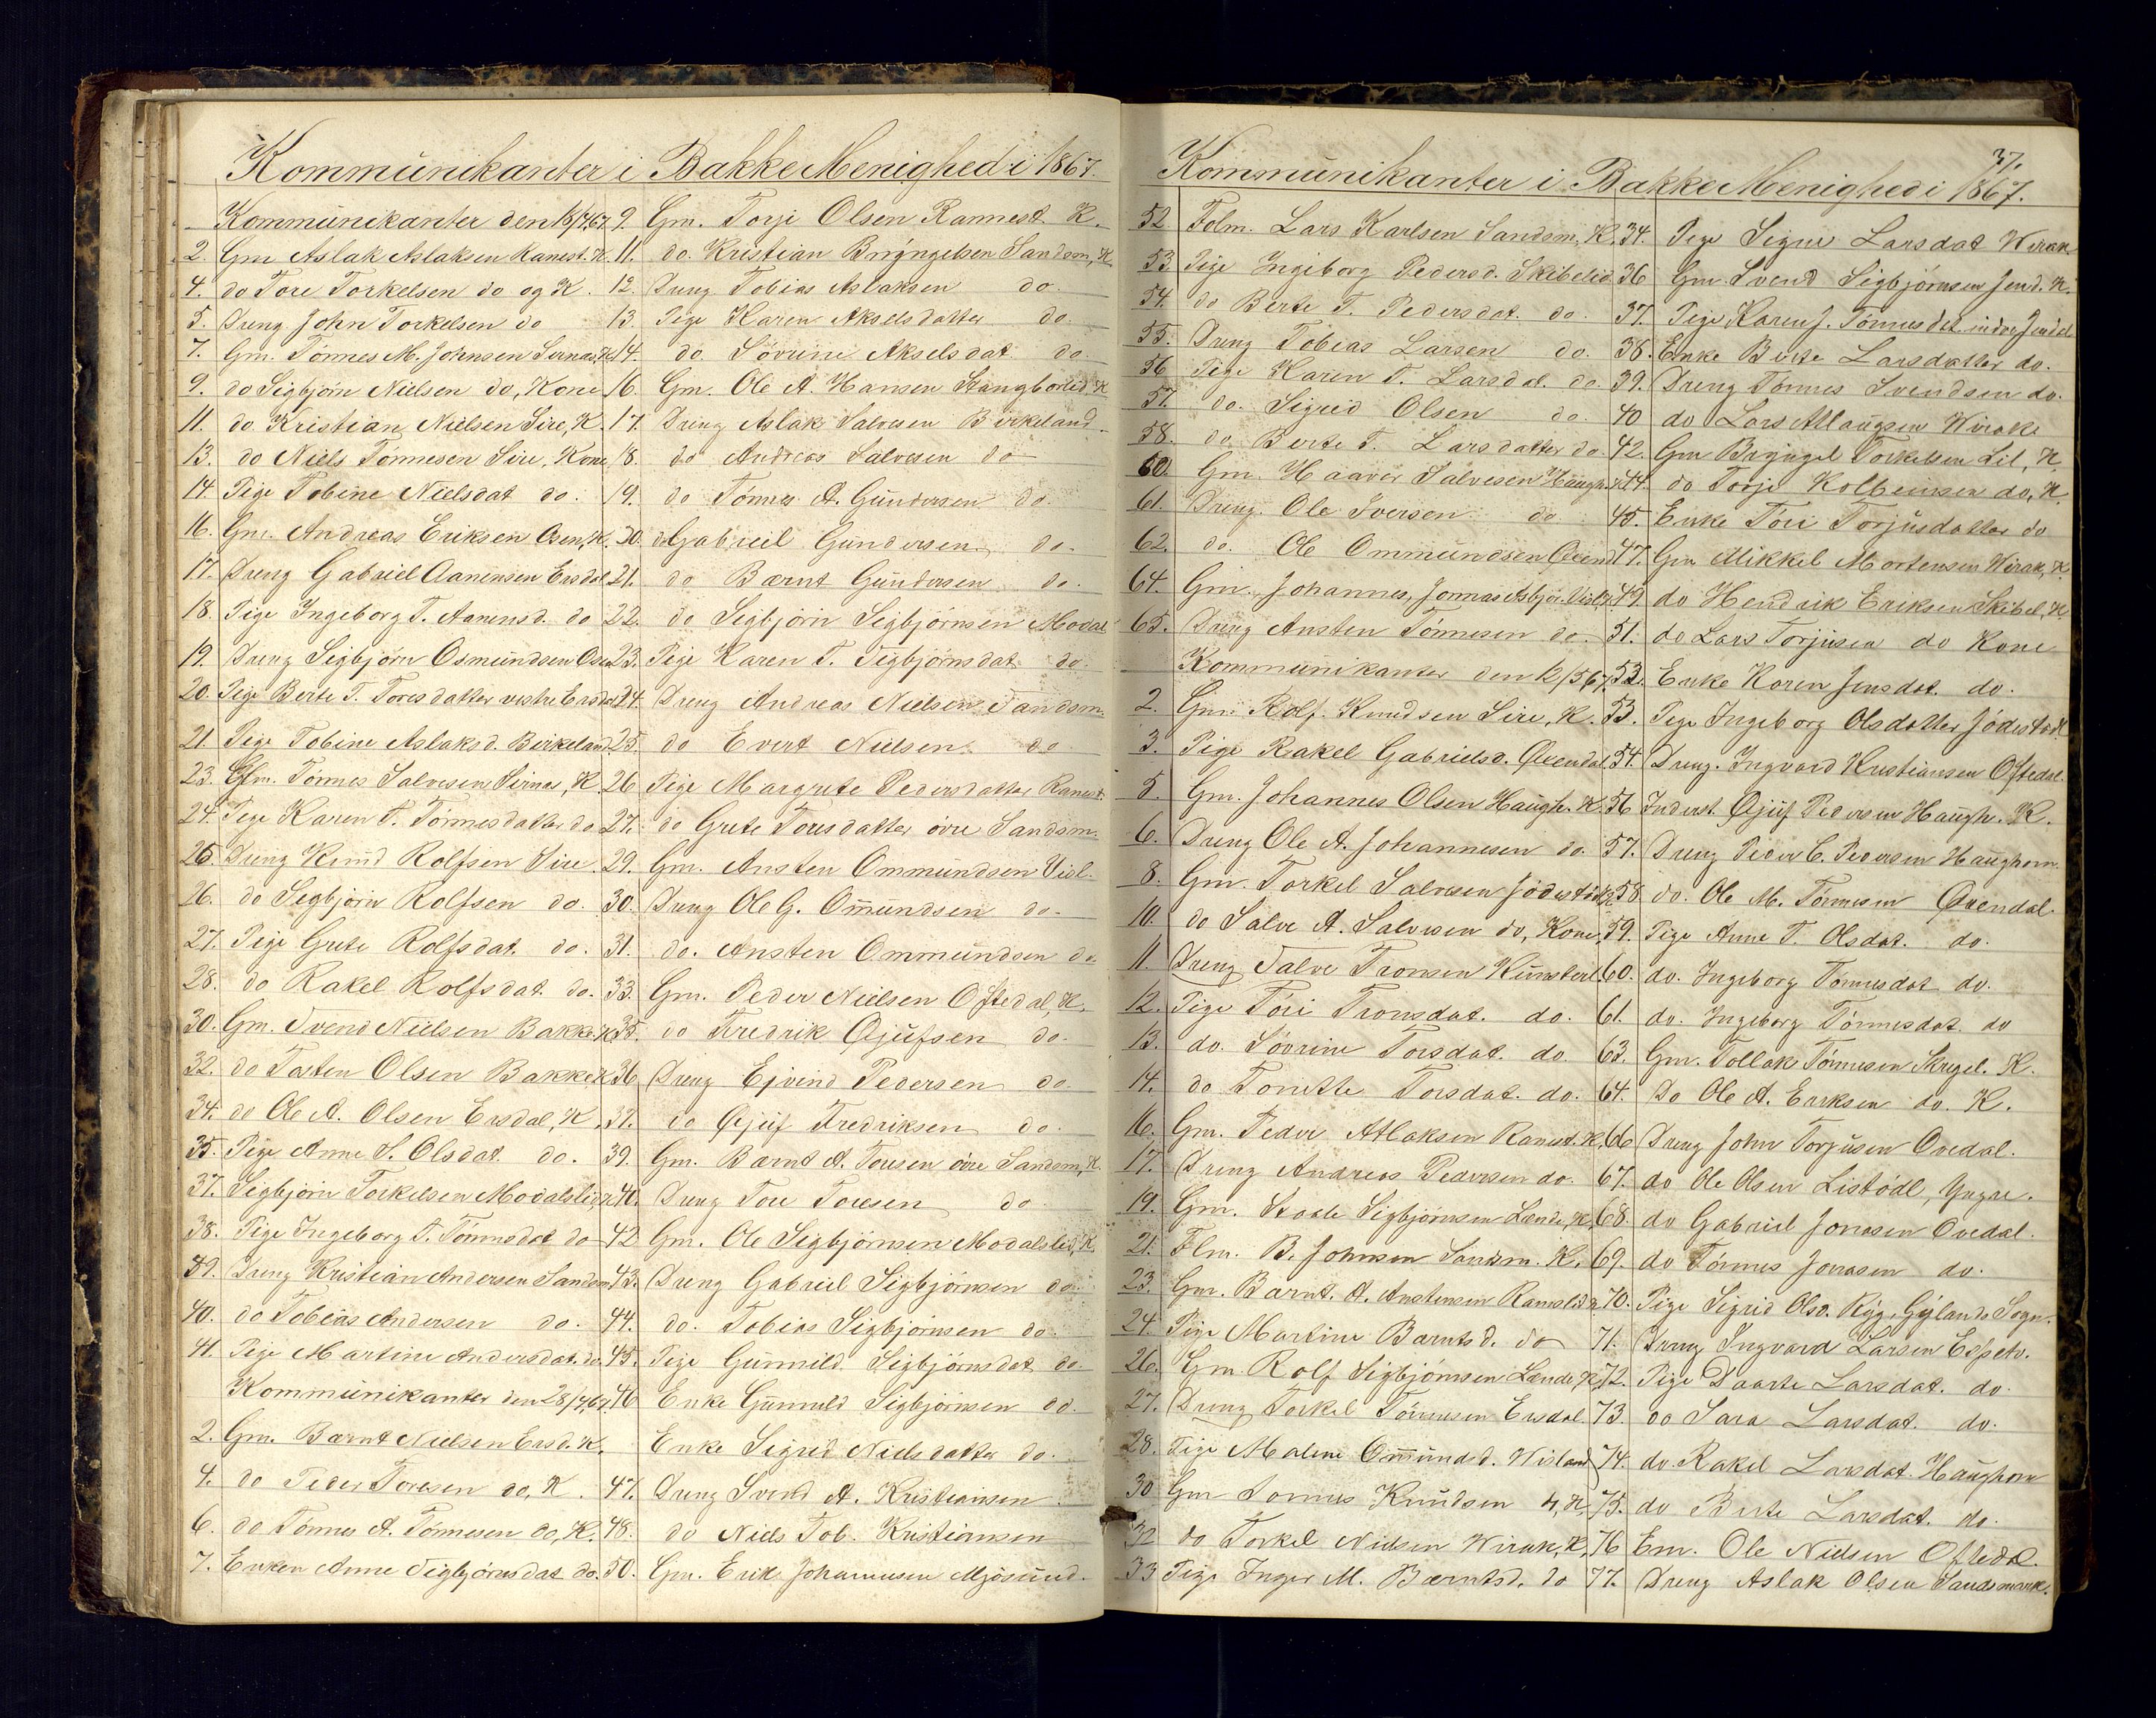 Kommunikanter i Bakke Menighed i 1867.
Kommunikanter den 18/4 67.
2. Gm Aslak Aslaksen Ranest. K.
4. do Tore Torkelsen do og K.
5. Dreng John Torkelsen do
7. Gm. Tönnes M. Johnsen Sirnas, K.
9. do Sigbjörn Nielsen do, Kone
11. do. Kristian Nielsen Sire, K.
13. do Niels Tönnesen Sire, Kone
14. Pige Tobine Nielsdat do.
16. Gm. Andreas Eriksen Osen, K.
17. Dreng Gabriel Aanensen Ersdal
18. Pige Ingeborg T. Aanensd. do
19. Dreng Sigbjörn Osmundsen Osen
20. Pige Berte T. Toresdatter vestre Ersdal
21. Pige Tobine Aslaksd. Birkeland
23. Gm. Tönnes Salvesen Sirnas, K.
24. Pige Karen T. Tönnesdatter do
25. Dreng Knud Rolfsen Sire.
26. do Segbjörn Rolfsen do.
27. Pige Grete Rolfsdat. do.
28. do Rakel Rolfsdat. do.
30. Gm. Svend Nielsen Bakke, K.
32. do Tosten Olsen Bakke K
34. do Ole A. Olsen Ersdal, K.
35. Pige Anne S. Olsdat. do.
37. Sigbjörn Torkelsen Modalslid, K
38. Pige Ingeborg T. Tönnesdat do
39. Dreng Kristian Andersen Sandsm
40. do Tobias Andersen do.
41. Pige Martine Andersdat. do.
Kommunikanter den 28/4 67.
2. Gm. Bærnt Nielsen Ersd. K.
4. do Peder Toresen do, K.
6. do Tönnes A. Tönnesen do, K.
7. Enken Anne Sigbjörnsdat do.
9. Gm. Torji Olsen Rannest. K.
11. do. Kristian Brÿngelsen Sandsm, K
12. Dreng Tobias Aslaksen do.
13. Pige Karen Akselsdatter do.
14. do. Sövrine Akselsdat. do.
16. Gm. Ole A. Hansen Stangborlid, K
17. Dreng Aslak Salvesen Birkeland
18. do Andreas Salvesen do
19. do Tönnes A. Gundersen do.
20. do Gabrieil Gundersen do.
21. do Bærnt Gundersen do
22. do Segbjörn Sigbjörnsen Modal
23. Pige Karen T. Sigbjörnsdat do
24. Dreng Andreas Nielsen Sandsm.
25. do Evert Nielsen do
26 Pige Margrete Pedersdatter Ranest.
27. do Grete Toresdatter övre Sandsm.
29. Gm. Ansten Ommundsen Visl.
30. Dreng Ole G. Om̅undsen do.
31. do. Ansten Ommundsen do.
33. Gm. Peder Nielsen Oftedal, K.
35. do Fredrik Qjufsen do.
36 Dreng Ejvind Pedersen do.
37. do Qjuf Fredriksen do.
39. Gm. Bærnt A. Toresen övre Sandsm, K.
40. Dreng Tore Toresen do
42 Gm. Ole Segbjörnsen Modalslid, K.
43. Dreng Gabriel Segbjörnsen do.
44. do. Tobias Sigbjörnsen do.
45. Pige Gunnild Sigbjörnsdat do.
46 Enke Gunnild Sigbjörnsen do.
Enke Sigrid Nielsdatter do.
47. Dreng Svend A. Kristiansen
48. do Niels Tob. Kristiansen
50. Gm. Erik Johannesen Mjösund.
37.
Kommunikanter i Bakke Menighed i 1867.
52. Folm. Lars Karlsen Sandsm, K.
53. Pige Ingiborg Pedersd. Skibelid
54. do Berte T. Pedersdat. do.
55. Dreng Tobias Larsen do.
56 Pige Karen T. Larsdat. do.
57. do. Sigrid Olsen do.
58. do Berte T. Larsdatter do
60. Gm. Haaver Salvesen Haugh. K
61. Dreng. Ole Iversen do
62. do. Ole Ommundsen Qvend
64. Gm. Johannes, Jonnas Asbjör. Visl. K
65. Dreng Ansten Tönnesen do.
Kommunikanter den 12/5 67.
2. Gm. Rolf. Knudsen Sire, K.
3. Pige Rakel Gabrielsd. Qvendal.
5. Gm. Johannes Olsen Haugh. K.
6. Dreng Ole A. Johannesen do.
8. Gm. Torkel Salvesen Jödestöl, K
10. do Salve A. Salvesen do, Kone
11. Dreng Salve Tronsen Kunsterl.
12. Pige Töri Tronsdat. do.
13. do. Sövrine Torsdat. do.
14. do Tonette Torsdat. do.
16. Gm. Peder Atlaksen Ranest. K.
17. Dreng Andreas Pedersen do.
19. Gm. Staale Sigbjörnsen Lænde, K
21. Flm. B. Johnsen Sandsm. K.
23. Gm. Bærnt. A. Anstensen Ramslid, K
24. Pige Martine Bærntsd. do
26. Gm. Rolf Sigbjörnsen Lænde, K
27. Dreng Torkel Tönnesen Ersdal.
28. Pige Malene Om̅undsd. Wisland
30 Gm Tönnes Knudsen , K,
32 do Torkel Nielsen Wirak, K.
33 Pige Inger M. Bærntsd. do
34. Pige Signe Larsdat Wirak
36 Gm. Svend Sigbjörnsen Jend. K.
37. Pige Karen J. Tönnesdat. indre Jendal
38. Enke Birte Larsdatter do.
39. Dreng Tönnes Svendsen do.
40 do Lars Atlaugsen Wirake
42. Gm Brÿngel Torkelsen Lil, K
44. do Torje Kolbeinsen do, K
45. Enke Töri Torjusdatter do
47. Gm Mikkel Mortensen Wirak, K
49. do Hendrik Eriksen Skibel, K
51. do Lars Torjusen do Kone
52. Enke Karen Jensdat. do.
53. Pige Ingeborg Olsdatter Jödestöl.
54. Dreng. Ingvard Kristiansen Oftedal.
56 Inderst. Qjuf Pedersen Haugh. K.
57. Dreng Peder C. Pedersen Haughom
58 do. Ole M. Tönnesen Qvendal.
59. Pige Anne T. Olsdat. do.
60. do. Ingeborg Tönnesdat do.
61. do. Ingeborg Tönnesdat. do
63. Gm. Tollak Tönnesen Skregel. K.
64. Do Ole A. Eriksen do. K.
66 Dreng John Torjusen Ovedal.
67. do Ole Olsen Listödl, Yngre.
68. do Gabriel Jonasen Ovedal.
69. do Tönnes Jonasen do.
70. Pige Sigrid Olsd. Rÿg. Gÿlands Sogn.
71. Dreng Ingvard Larsen Espetv.
72. Pige Daarte Larsdat. do.
73. do Sara Larsdat. do.
74. do. Rakel Larsdat. Haughom
75. do Berte Larsdat. do.
76 Em. Ole Nielsen Oftedal.
77. Dreng Aslak Olsen Sandsmark.